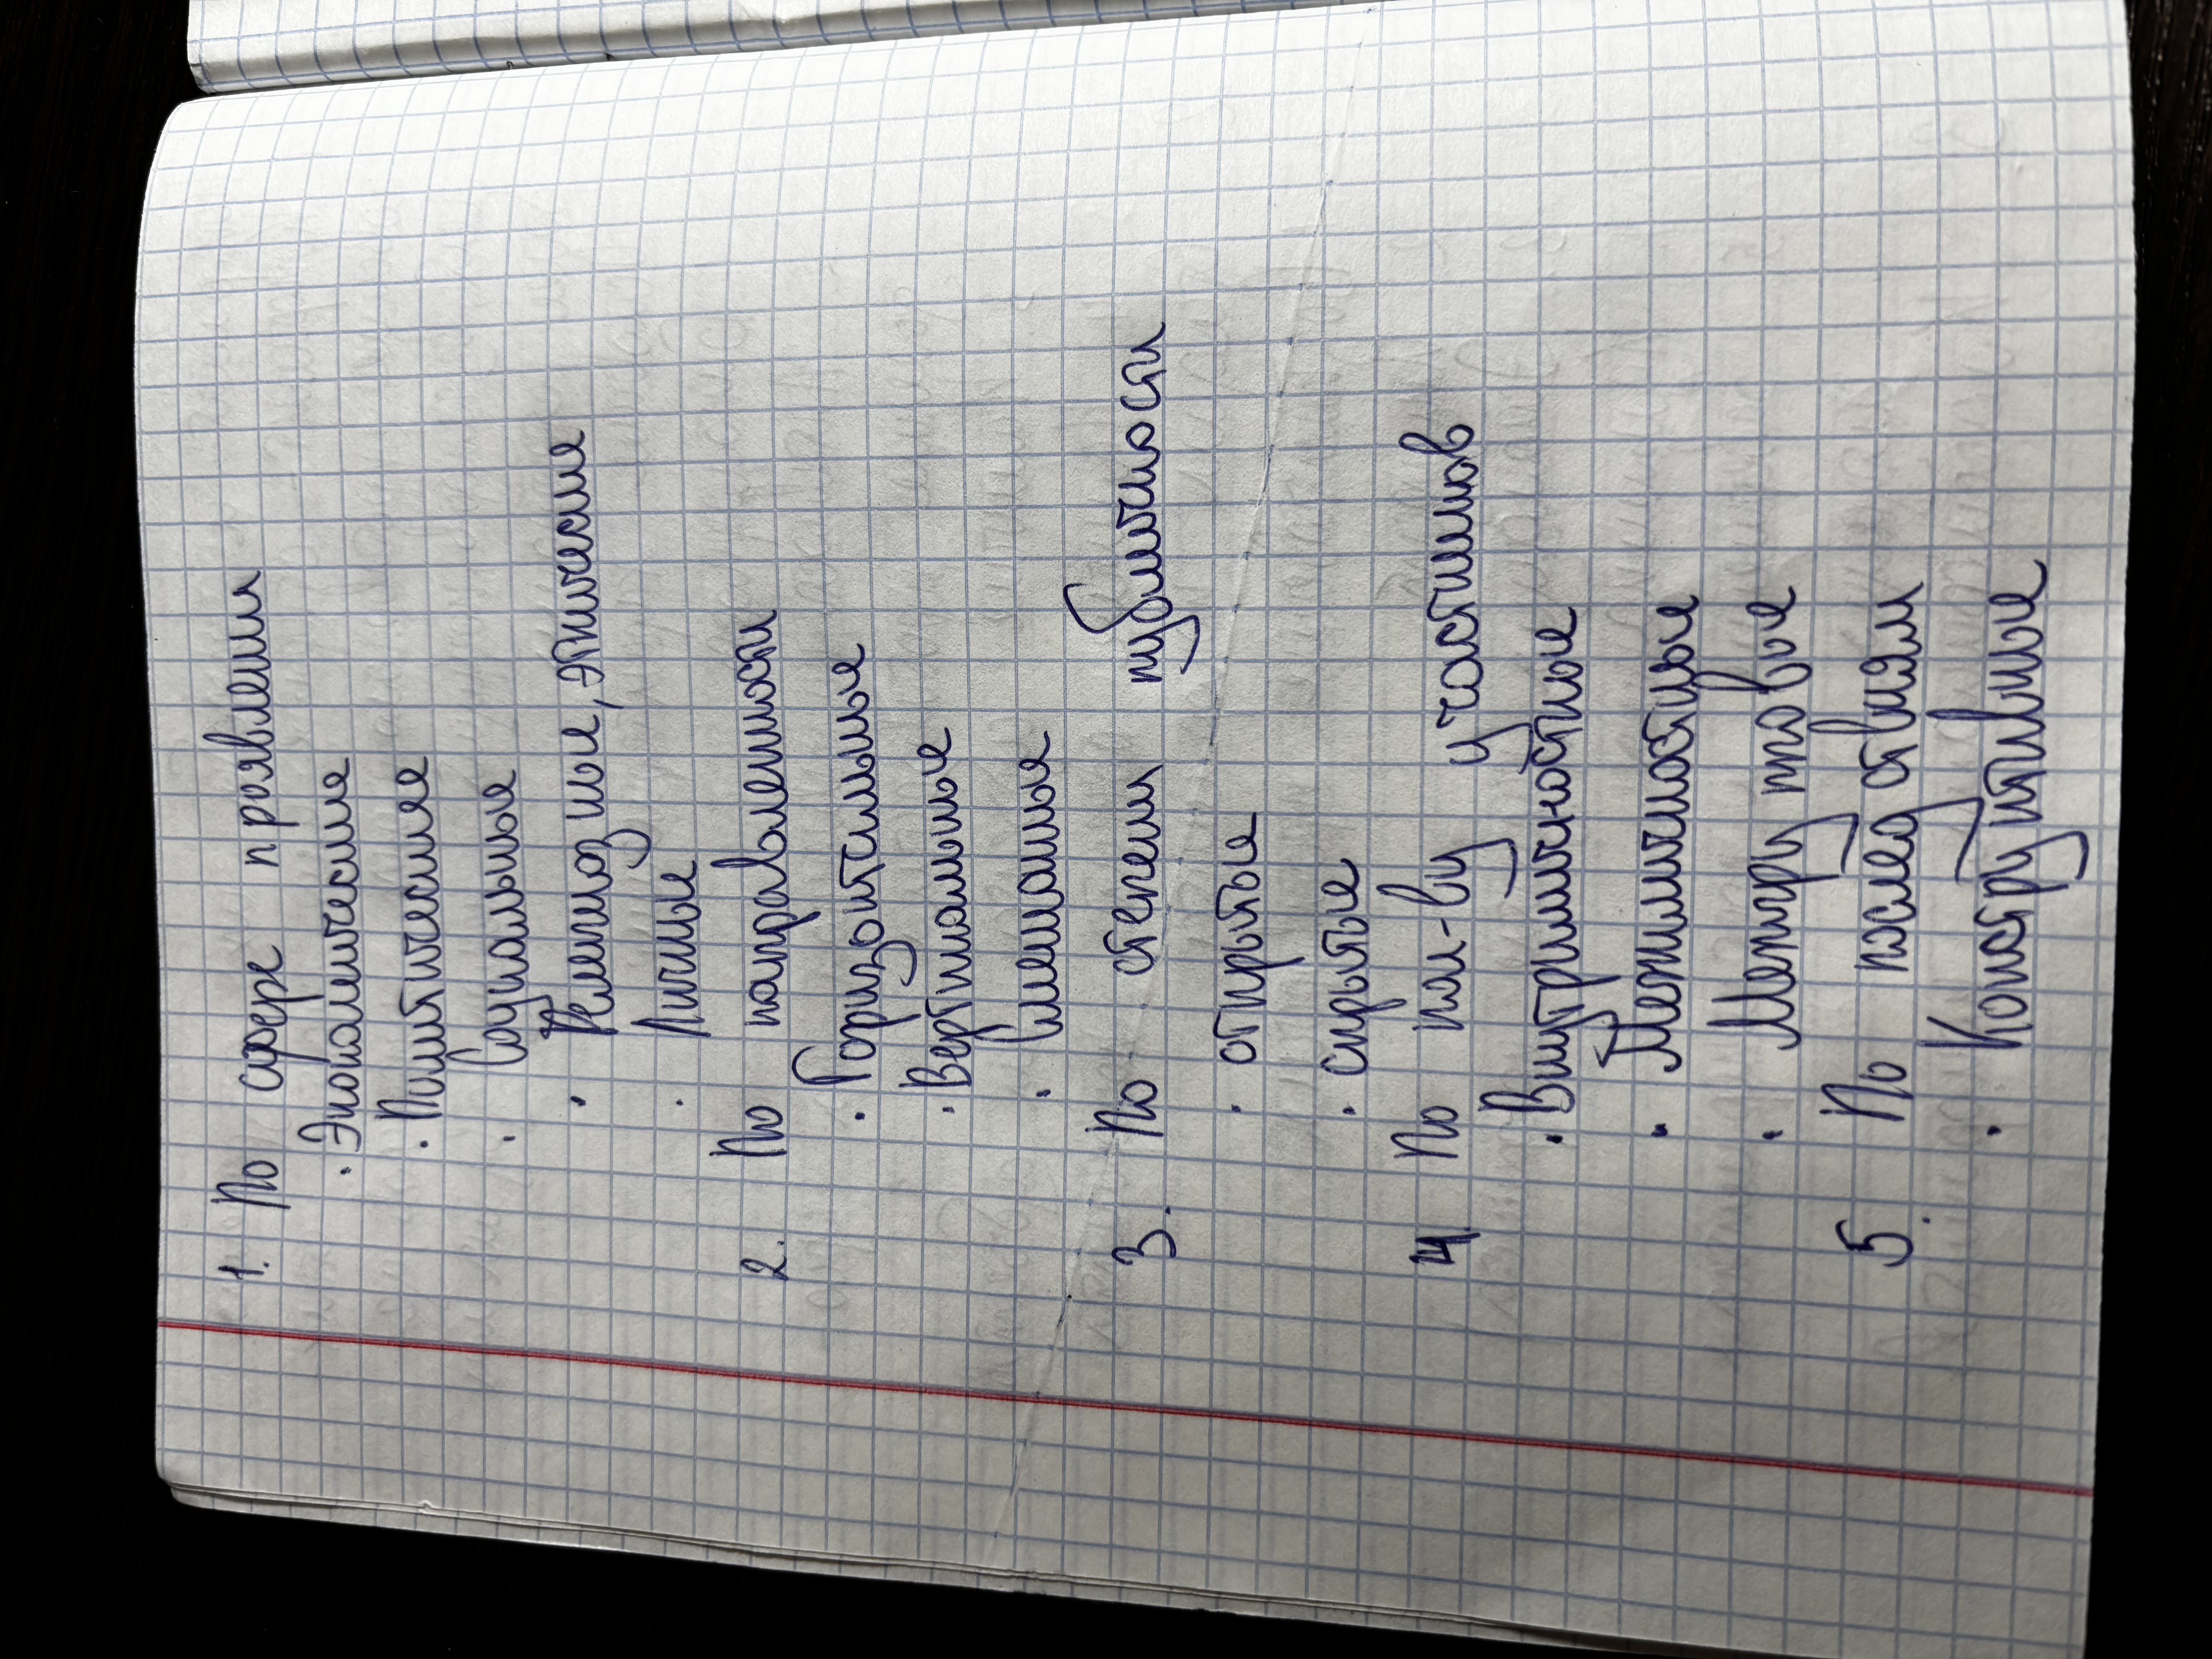 1. По сфере проявления
· Экономические
· Политические
· Социальные
· Религиозные, этнические
· Личные
2. По направленности
· Горизонтальные
· Вертикальные
· Смешаные
3. По степени публичности
· открытые
· скрытые
4. По кол-ву участников
· Внутриличностные
· Межличностные
· Межгрупповые
5. По последствиям
· Конструктивные